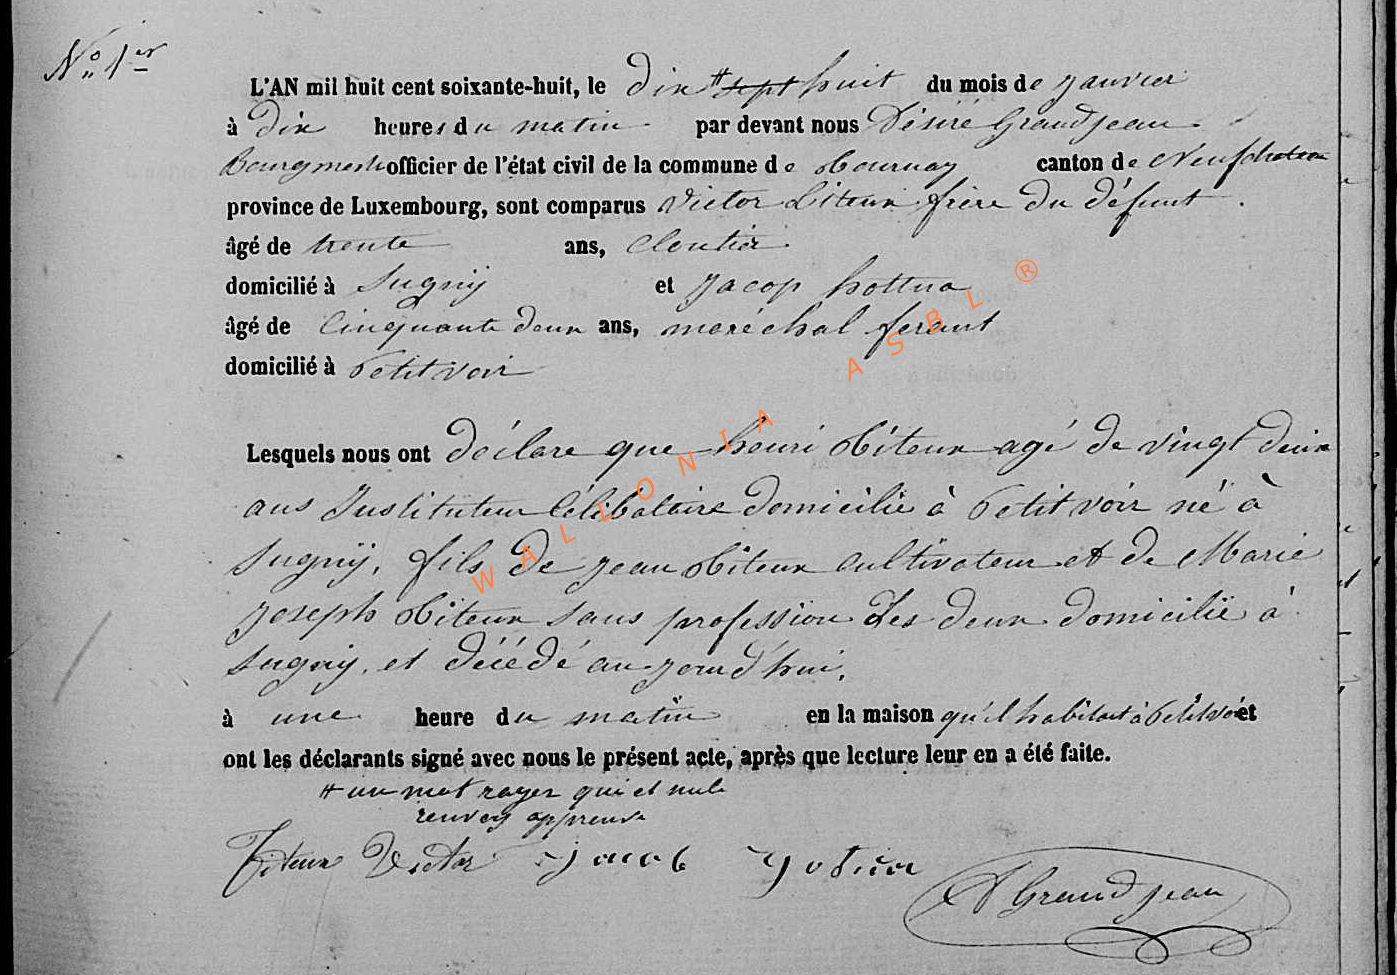 N° 1er
L'AN mil huit cent soixante-huit, le dix # sept huit du mois de janvier
à dix heures du matin par devant nous Désiré Grandjean
Bourgmestre officier de l'état civil de la commune de Tournay canton de Neufchateau
province de Luxembourg, sont comparus Victor Titeux frère du défunt.
âgé de trente ans, cloutier
domicilié à Sugnÿ et Jacop hottua
âgé de Cinquante deux ans, maréchal ferant
domicilié à Petitvoir
Lesquels nous ont déclare que henri Titeux agé de vingt deux
ans Instituteur Célibataire domicilié à Petitvoir né à
Sugnÿ, fils de jean Titeux cultivateur et de Marie
joseph Titeux sans profession Les deux domicilié à
Sugnÿ, et décédé au jourd'hui,
à une heure du matin en la maison qu'il habitait à Petitvoir et
ont les déclarants signé avec nous le présent acte, après que lecture leur en a été faite.
# un mot rayer qui et nule
renvoy approuve
Titeux Victor Jacob
D Grandjean
WALLONIA ASBL ®